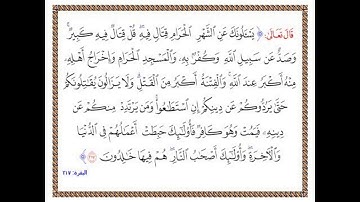 قَالَ تَعَالَىٰ: ﴿ يَسْـَٔلُونَكَ عَنِ ٱلشَّهْرِ ٱلْحَرَامِ قِتَالٍ فِيهِ ۖ قُلْ قِتَالٌ فِيهِ كَبِيرٌ ۖ
وَصَدٌّ عَن سَبِيلِ ٱللَّهِ وَكُفْرٌۢ بِهِۦ وَٱلْمَسْجِدِ ٱلْحَرَامِ وَإِخْرَاجُ أَهْلِهِۦ
مِنْهُ أَكْبَرُ عِندَ ٱللَّهِ ۚ وَٱلْفِتْنَةُ أَكْبَرُ مِنَ ٱلْقَتْلِ ۗ وَلَا يَزَالُونَ يُقَـٰتِلُونَكُمْ
حَتَّىٰ يَرُدُّوكُمْ عَن دِينِكُمْ إِنِ ٱسْتَطَـٰعُوا۟ ۚ وَمَن يَرْتَدِدْ مِنكُمْ عَن
دِينِهِۦ فَيَمُتْ وَهُوَ كَافِرٌ فَأُو۟لَـٰٓئِكَ حَبِطَتْ أَعْمَـٰلُهُمْ فِى ٱلدُّنْيَا
وَٱلْـَٔاخِرَةِ ۖ وَأُو۟لَـٰٓئِكَ أَصْحَـٰبُ ٱلنَّارِ ۖ هُمْ فِيهَا خَـٰلِدُونَ ﴿٢١٧﴾ ﴾
البقرة: ٢١٧